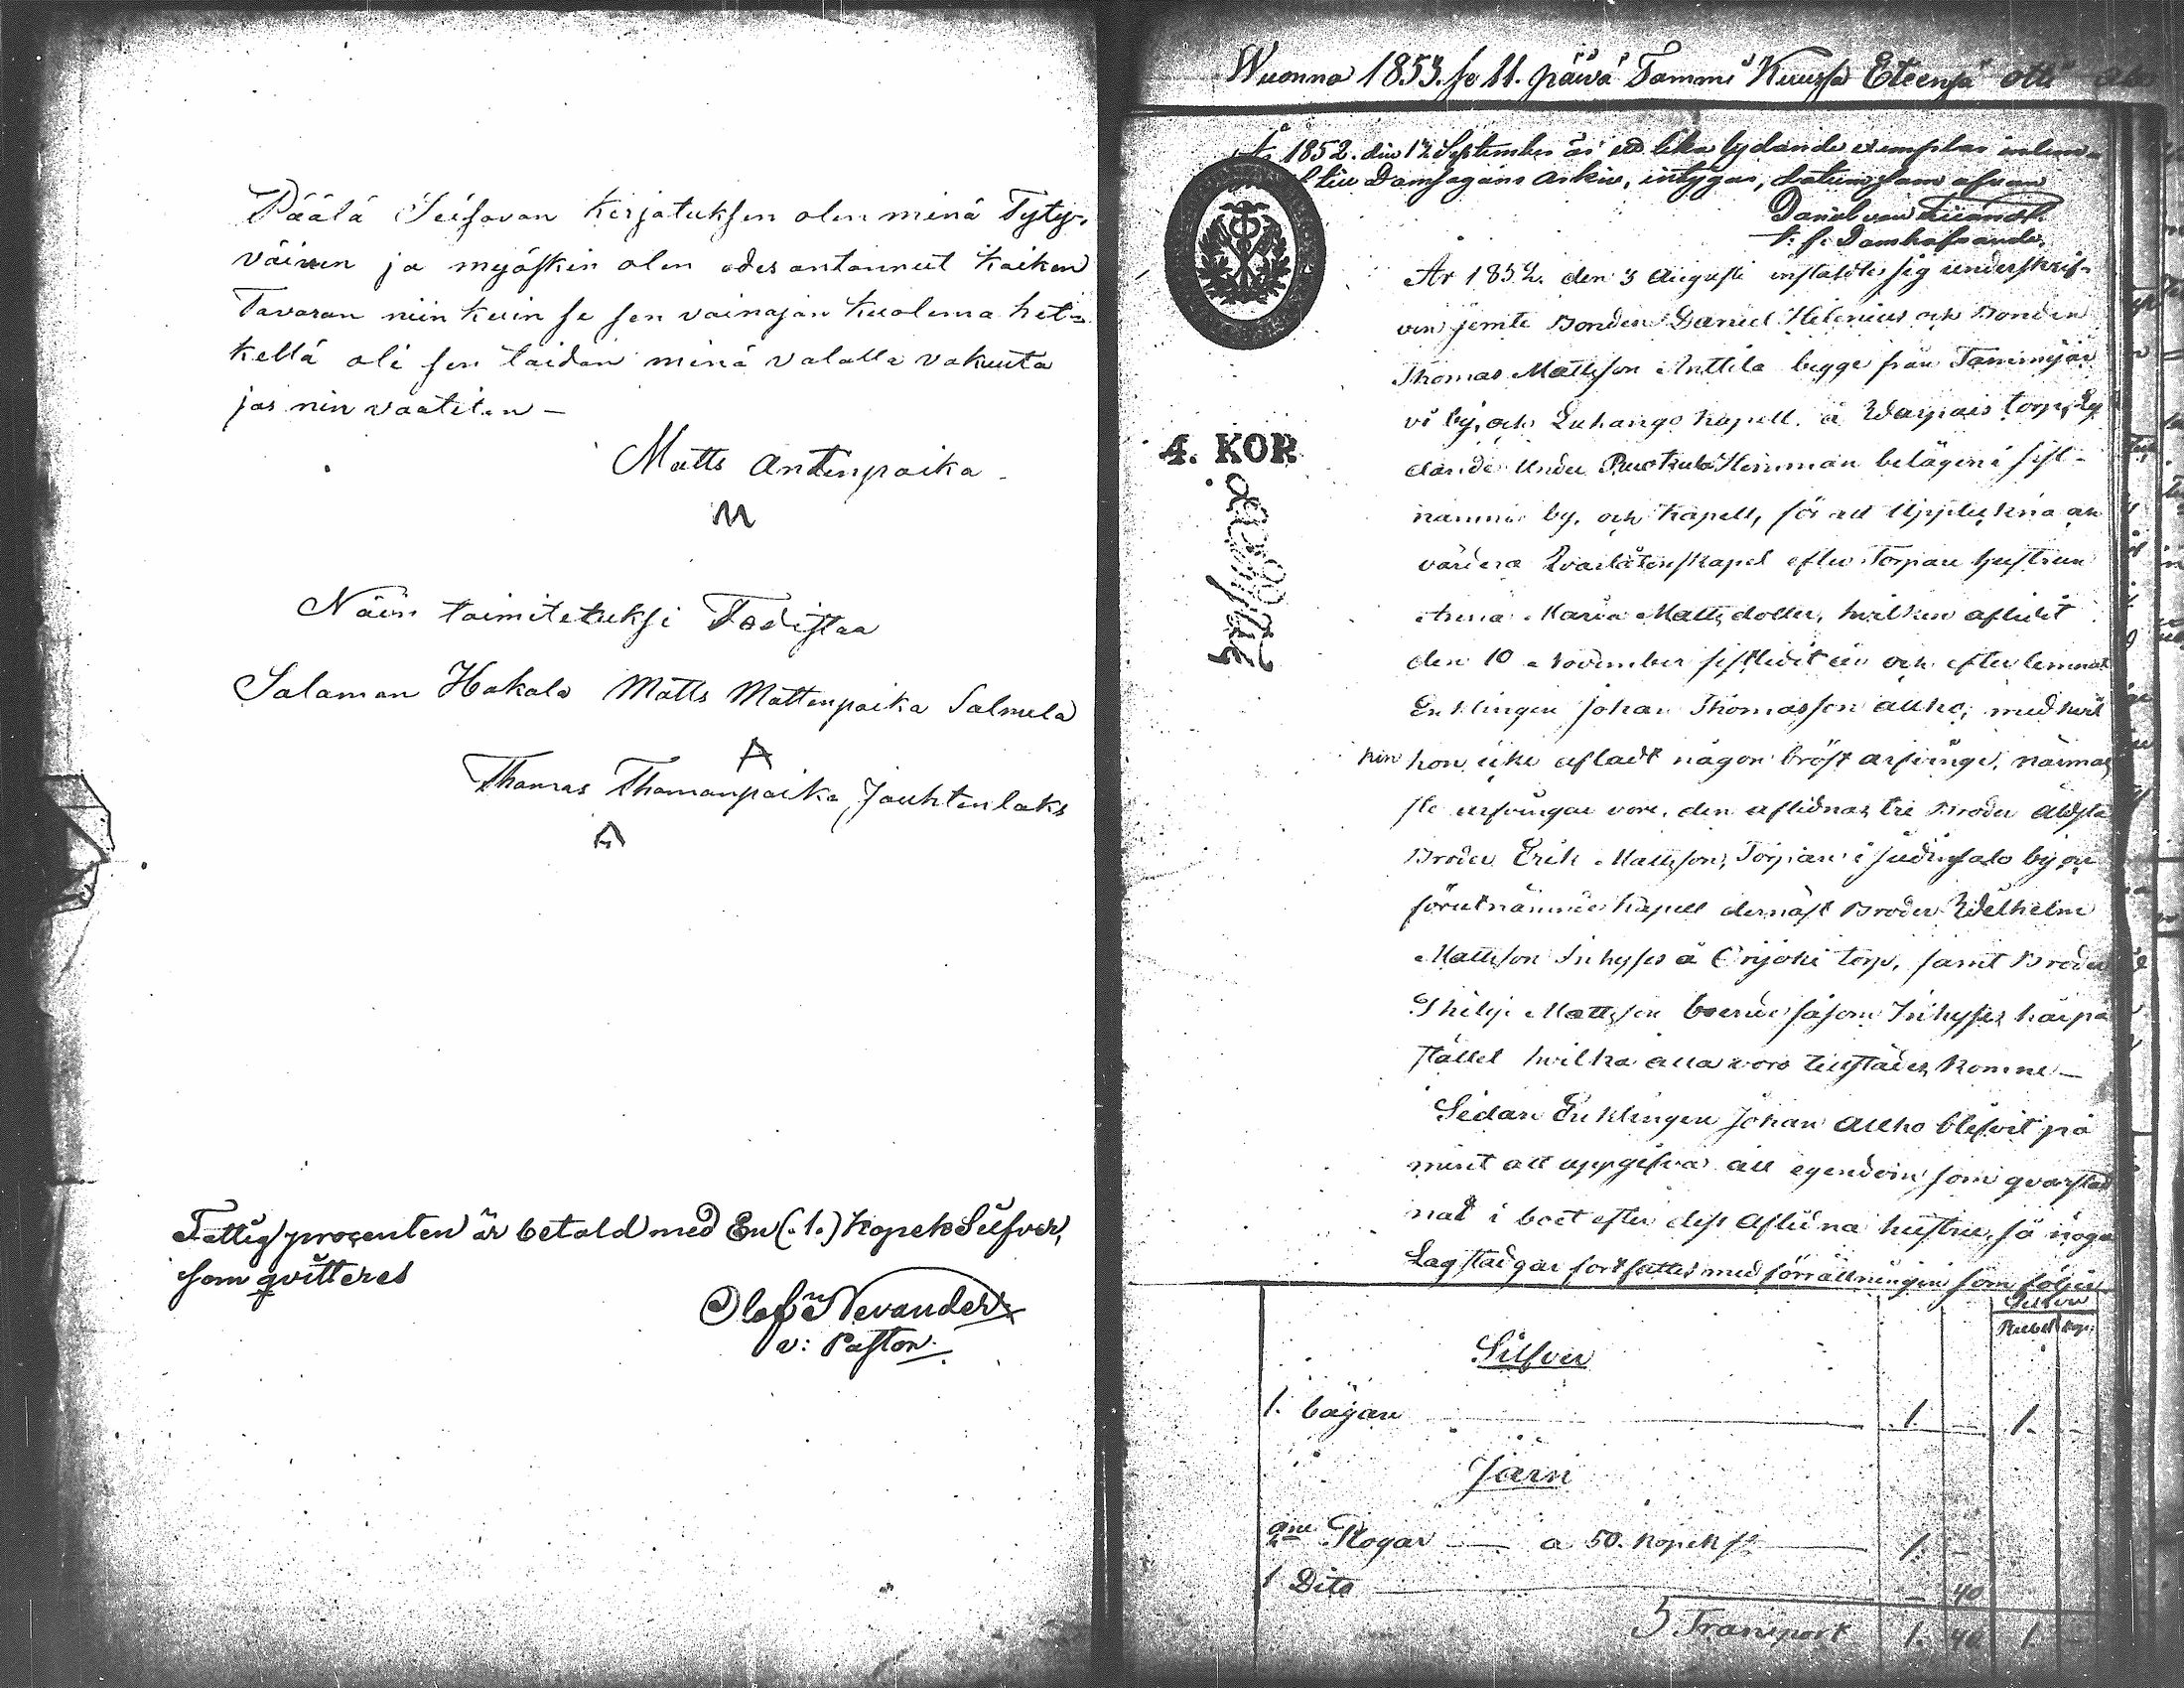 Päälä Seisovan kirjatuksen olen minä Tyty-
väinen ja myöskin olen edes antannut kaiken
Tavaran niin kuin se sen vainajan kuolema het-
kellä oli sen taidan minä valalla vakuuta
jos niin vaatitan –
Matts Antinpoika
M
Näin toimitetuksi Todistaa
Salaman Hakala Matts Mattenpoika Salmela
Thomas Thomanpoika Jouhtenlaks
Fattigprocenten är betald med En (1.) kopek Silfver,
som qvitteres
Olof Nevander
v: Pastor.
Wuonna 1853. se 11. päivä Tammi Kuussa Eteensä otti
År 1852. den 12 September är ett lika lydande exemplar inlem-
till Domsagans Arkiv, intygar, datum som ofvan
Daniel von
t. f. Domhafvande
År 1852. den 3 Augusti instälte sig underskrif-
ven jemte Bonden Daniel Helenius och Bonden
Thomas Mattsson Anttila begge från Tammijär
vi by, och Luhango kapell. å Warpais torp, ly
dande under Ruokula Hemman belägen i sist-
nämnde by, och Kapell, för att Uppteckna och
värdera Qvarlåtenskapet efter Torpare hustrun
4. KOR
Anna Maria Mattsdotter, hvilken aflidit
den 10 November sistledit år och efterlemnat
Enklingen Johan Thomasson Auho, med hvil
ken hon icke aflat någon bröst arfvinge, närma
ste arfvingar vore, den aflidnas tre Broder äldsta
Broder Erik Mattsson, Torpare i Judinsalo by och
förutnämnde Kapell dernäst Broder Wilhelm
Mattsson Inhyses å torp, samt Broder
Philip Mattsson boende såsom Inhyses här på
stället hvilka alla voro tillstädes komne –
Sedan Enklingen Johan Auho blifvit på
mint att uppgifva all egendom som qvarstad
nat i boet efter dess Aflidna hustru, så noga
Lag stadgar fortsattes med förrättningen som följer
Silfver
Rubel Kop:
Silfver
1. bägare 1. – 1. –
Järn
2ne Plogar à 50. kopek st 1. –
1 Dito – 40
Transport 1. 40 1.